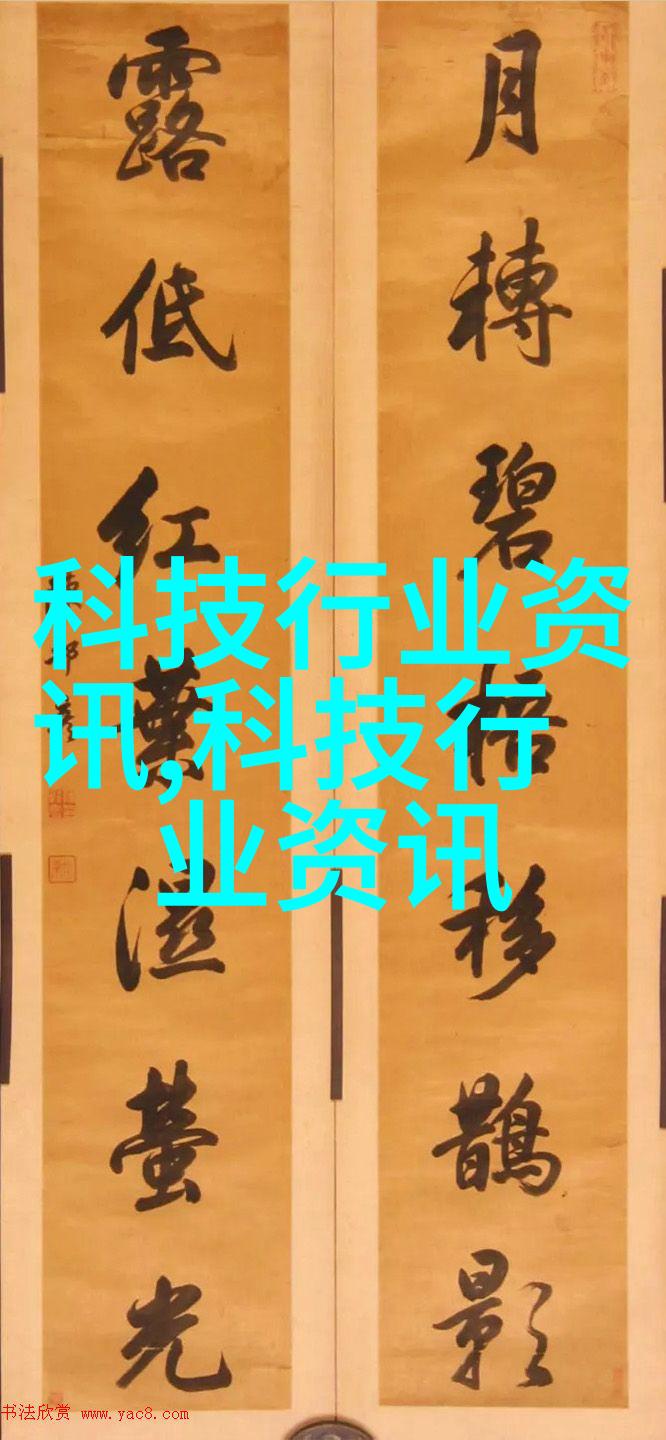 月轉碧梧移鵲影
露低紅葉溼螢光
科技行业资
讯,科技行
业资讯
书法欣赏 www.yac8.com